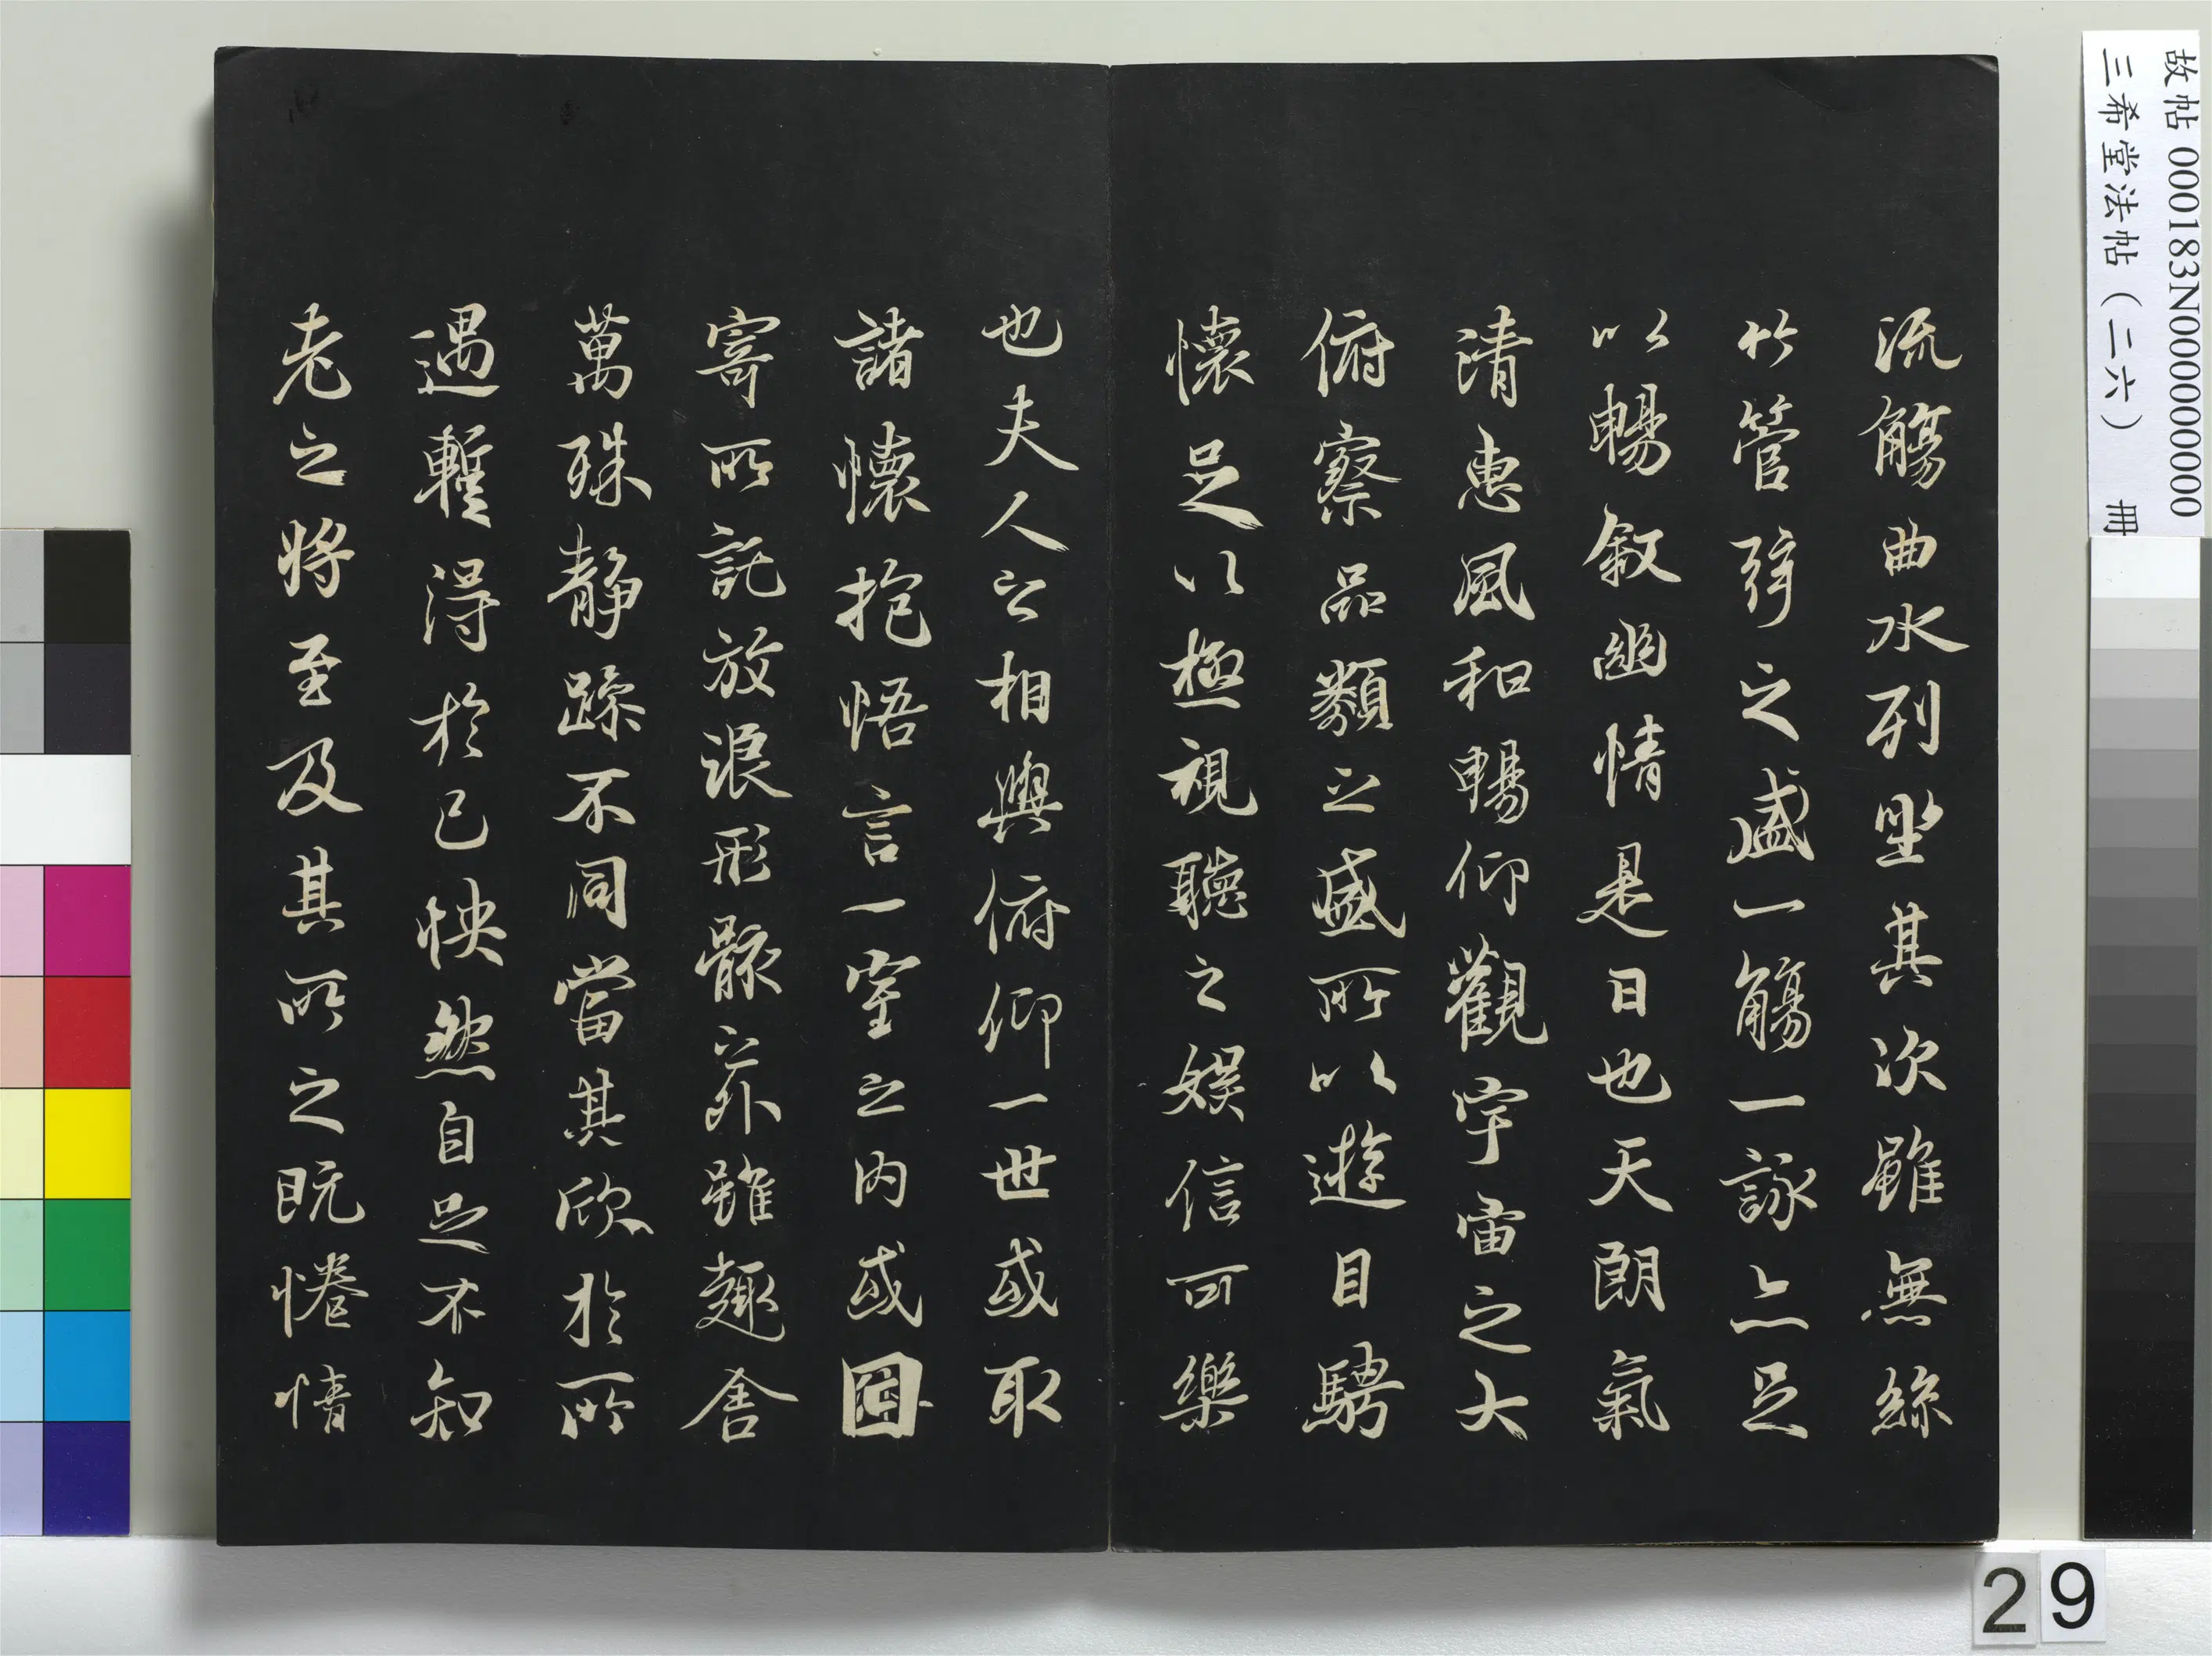 流觴曲水列坐其次雖無絲
竹管弦之盛一觴一詠亦足
以暢敘幽情是日也天朗氣
清惠風和暢仰觀宇宙之大
俯察品類之盛所以遊目騁
懷足以極視聽之娛信可樂
也夫人之相與俯仰一世或取
諸懷抱悟言一室之內或因
寄所託放浪形骸之外雖趣舍
萬殊靜躁不同當其欣於所
遇暫得於己怏然自足不知
老之將至及其所之既惓情
故帖 000183N000000000
三希堂法帖（二六） 冊
29